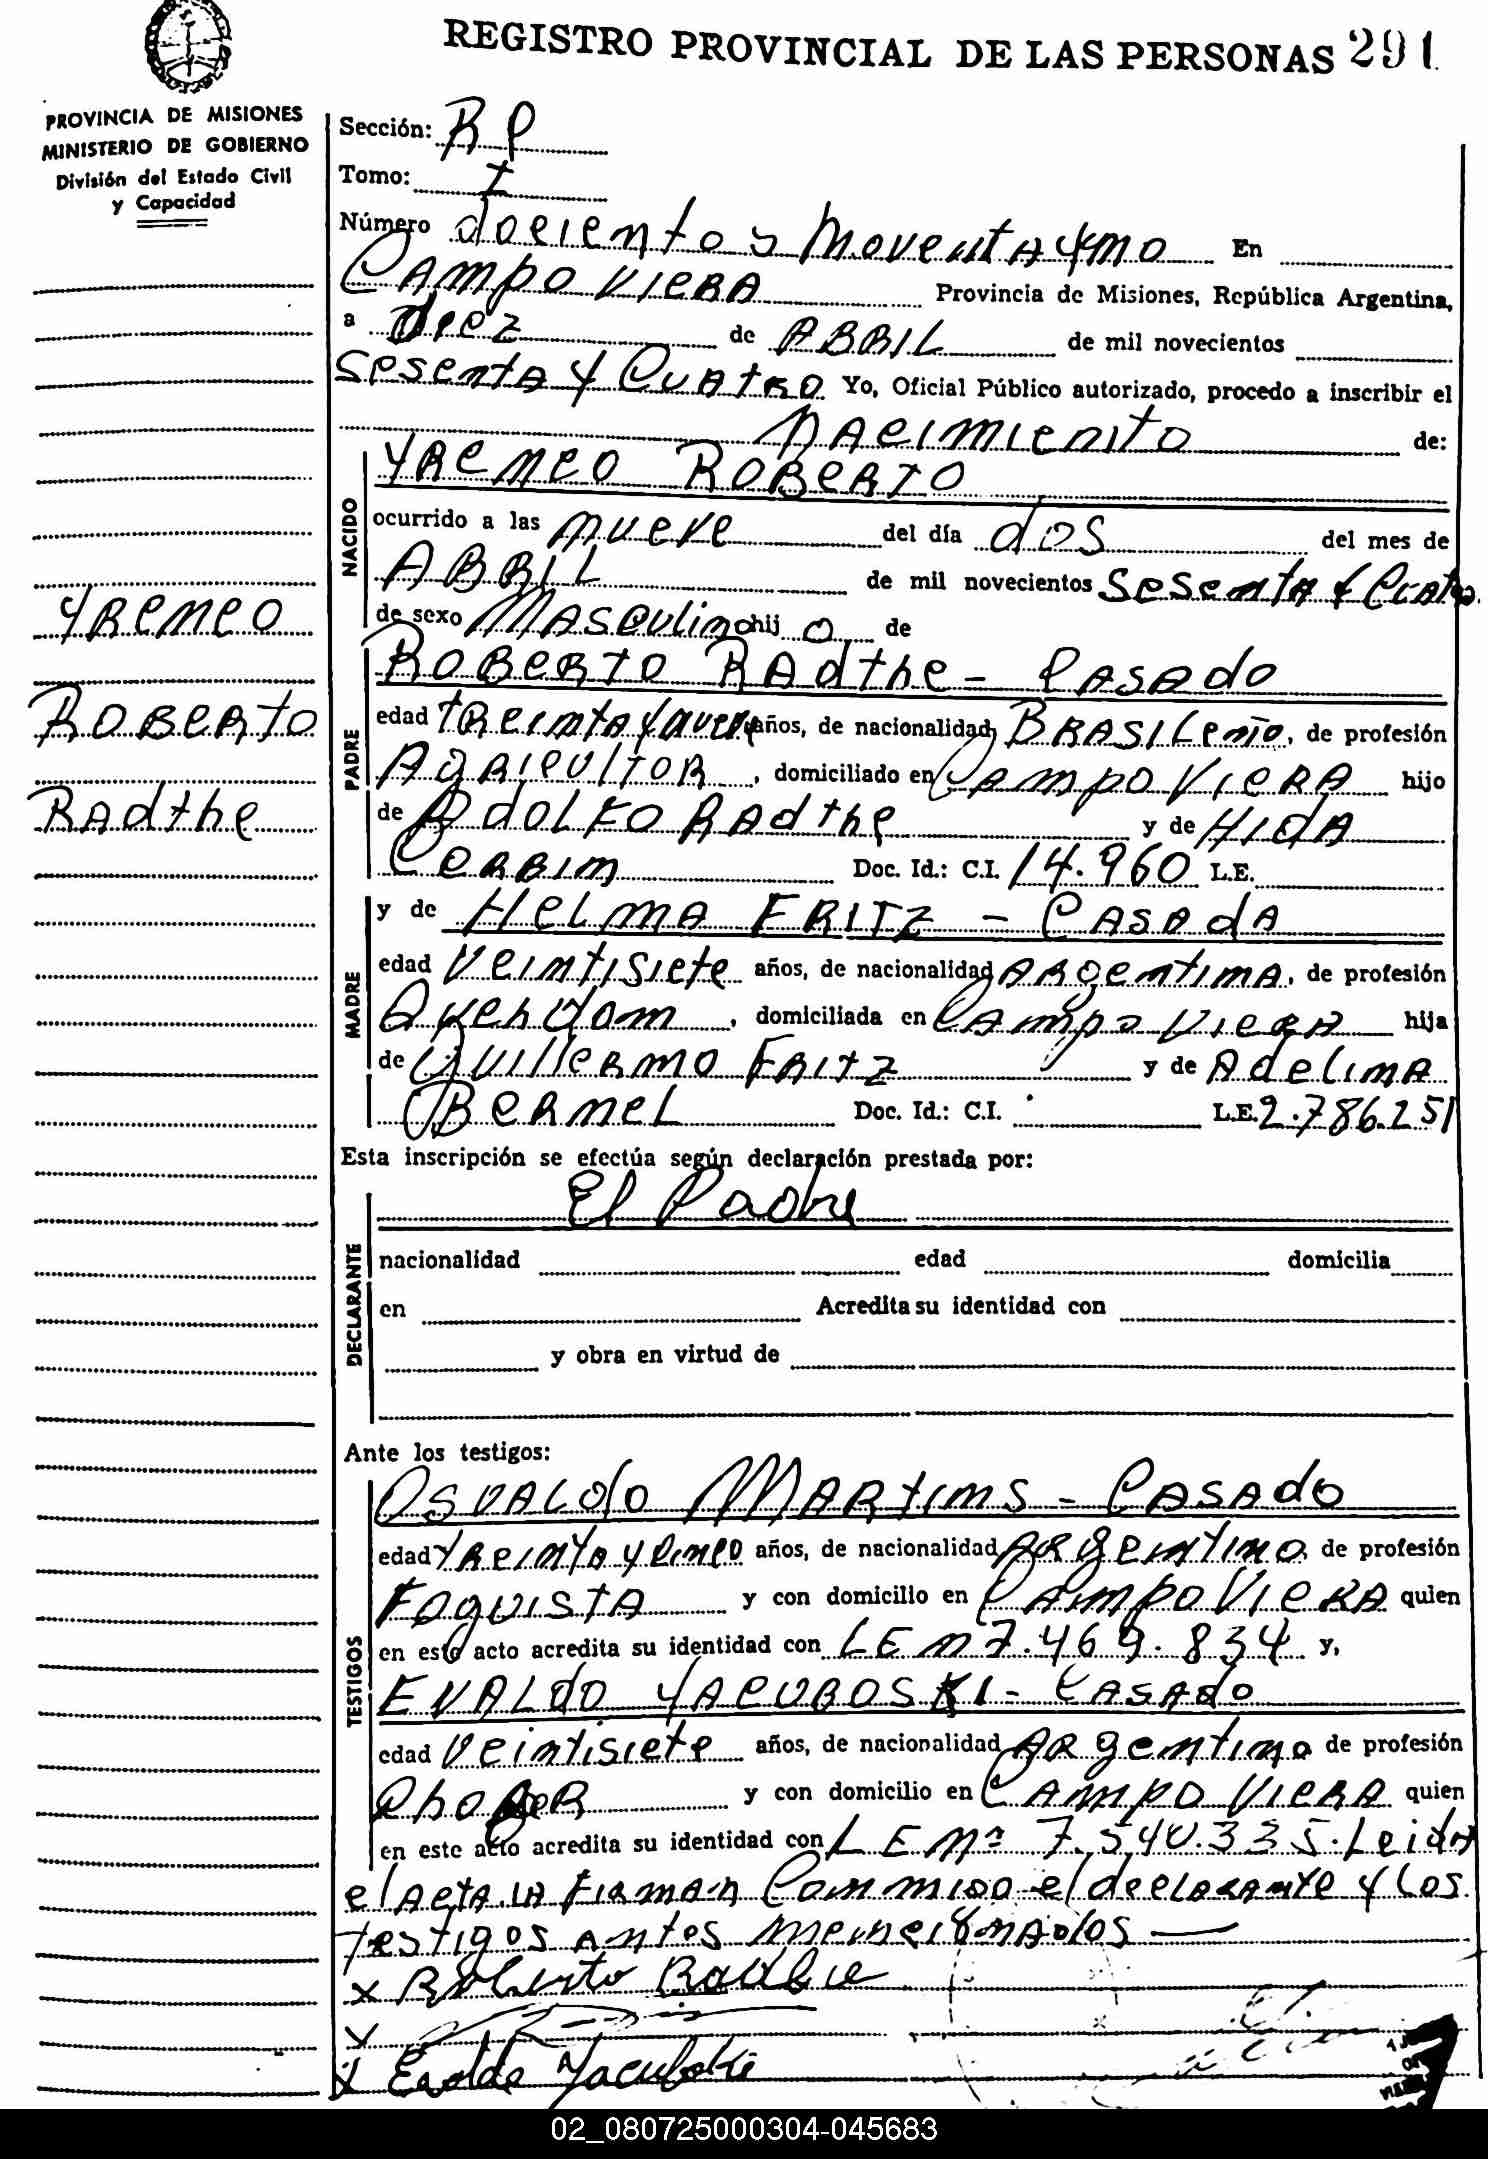 REGISTRO PROVINCIAL DE LAS PERSONAS 291
PROVINCIA DE MISIONES
MINISTERIO DE GOBIERNO
División del Estado Civil
y Capacidad
Sección: RP
Tomo: I
Número docientos Noventa y uno En
Campo Viera Provincia de Misiones, República Argentina,
a diez de ABRIL de mil novecientos
Sesenta y Cuatro Yo, Oficial Público autorizado, procedo a inscribir el
Nacimiento de:
NACIDO
YReneo Roberto
ocurrido a las nueve del día dos del mes de
ABRIL de mil novecientos Sesenta y Cuatro
de sexo Masculino hijo de
YReneo
Roberto
Radthe
PADRE
Roberto Radthe - Casado
edad treinta y nueve años, de nacionalidad Brasileño, de profesión
Agricultor, domiciliado en Campo Viera hijo
de Adolfo Radthe y de Hida
Cerbin Doc. Id.: C.I. 14.960 L.E.
MADRE
y de Helma Fritz - Casada
edad Veintisiete años, de nacionalidad Argentina, de profesión
, domiciliada en Campo Viera hija
de Guillermo Fritz y de Adelina
Doc. Id.: C.I. L.E. 2.786.251
Esta inscripción se efectúa según declaración prestada por:
DECLARANTE
El Padre
nacionalidad edad domicilia
en Acredita su identidad con
y obra en virtud de
Ante los testigos:
TESTIGOS
Osvaldo Martins - Casado
edad treinta y cinco años, de nacionalidad Argentino, de profesión
Foguista y con domicilio en Campo Viera quien
en este acto acredita su identidad con LE N 7.469.834 y,
Evaldo Yacuboski - Casado
edad Veintisiete años, de nacionalidad Argentino de profesión
Chofer y con domicilio en Campo Viera quien
en este acto acredita su identidad con LE Nº 7.540.335. Leida
el Acta la Firman Conmigo el declarante y los
testigos antes mencionados
x Roberto Radthe
x
x Evaldo Yacuboski
02_080725000304-045683